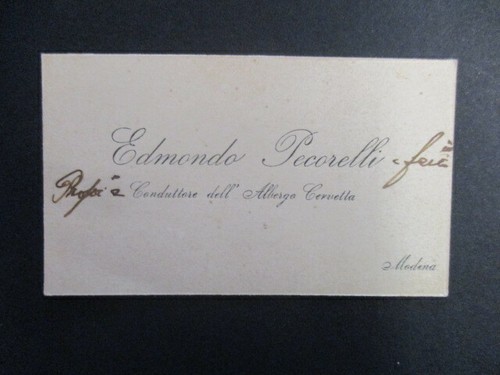 Edmondo Pecorelli
Conduttore dell' Albergo Cervetta
Modena